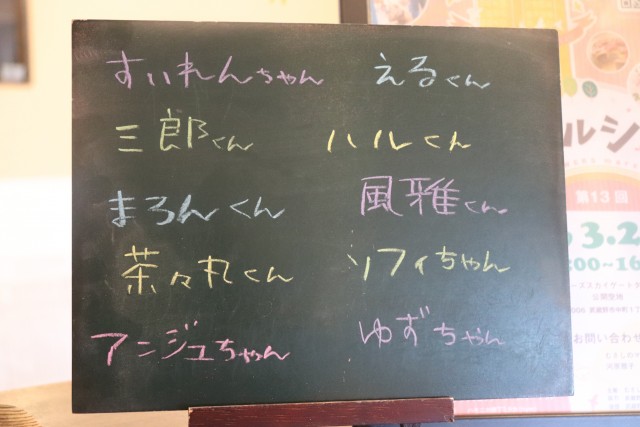 すいれんちゃん えるくん
三郎くん ハルくん
まろんくん 風雅くん
茶々丸くん ソフィちゃん
アンジュちゃん ゆずちゃん
ルシ
第13回
3.2
:00~16
公開空地
お問い合わせ